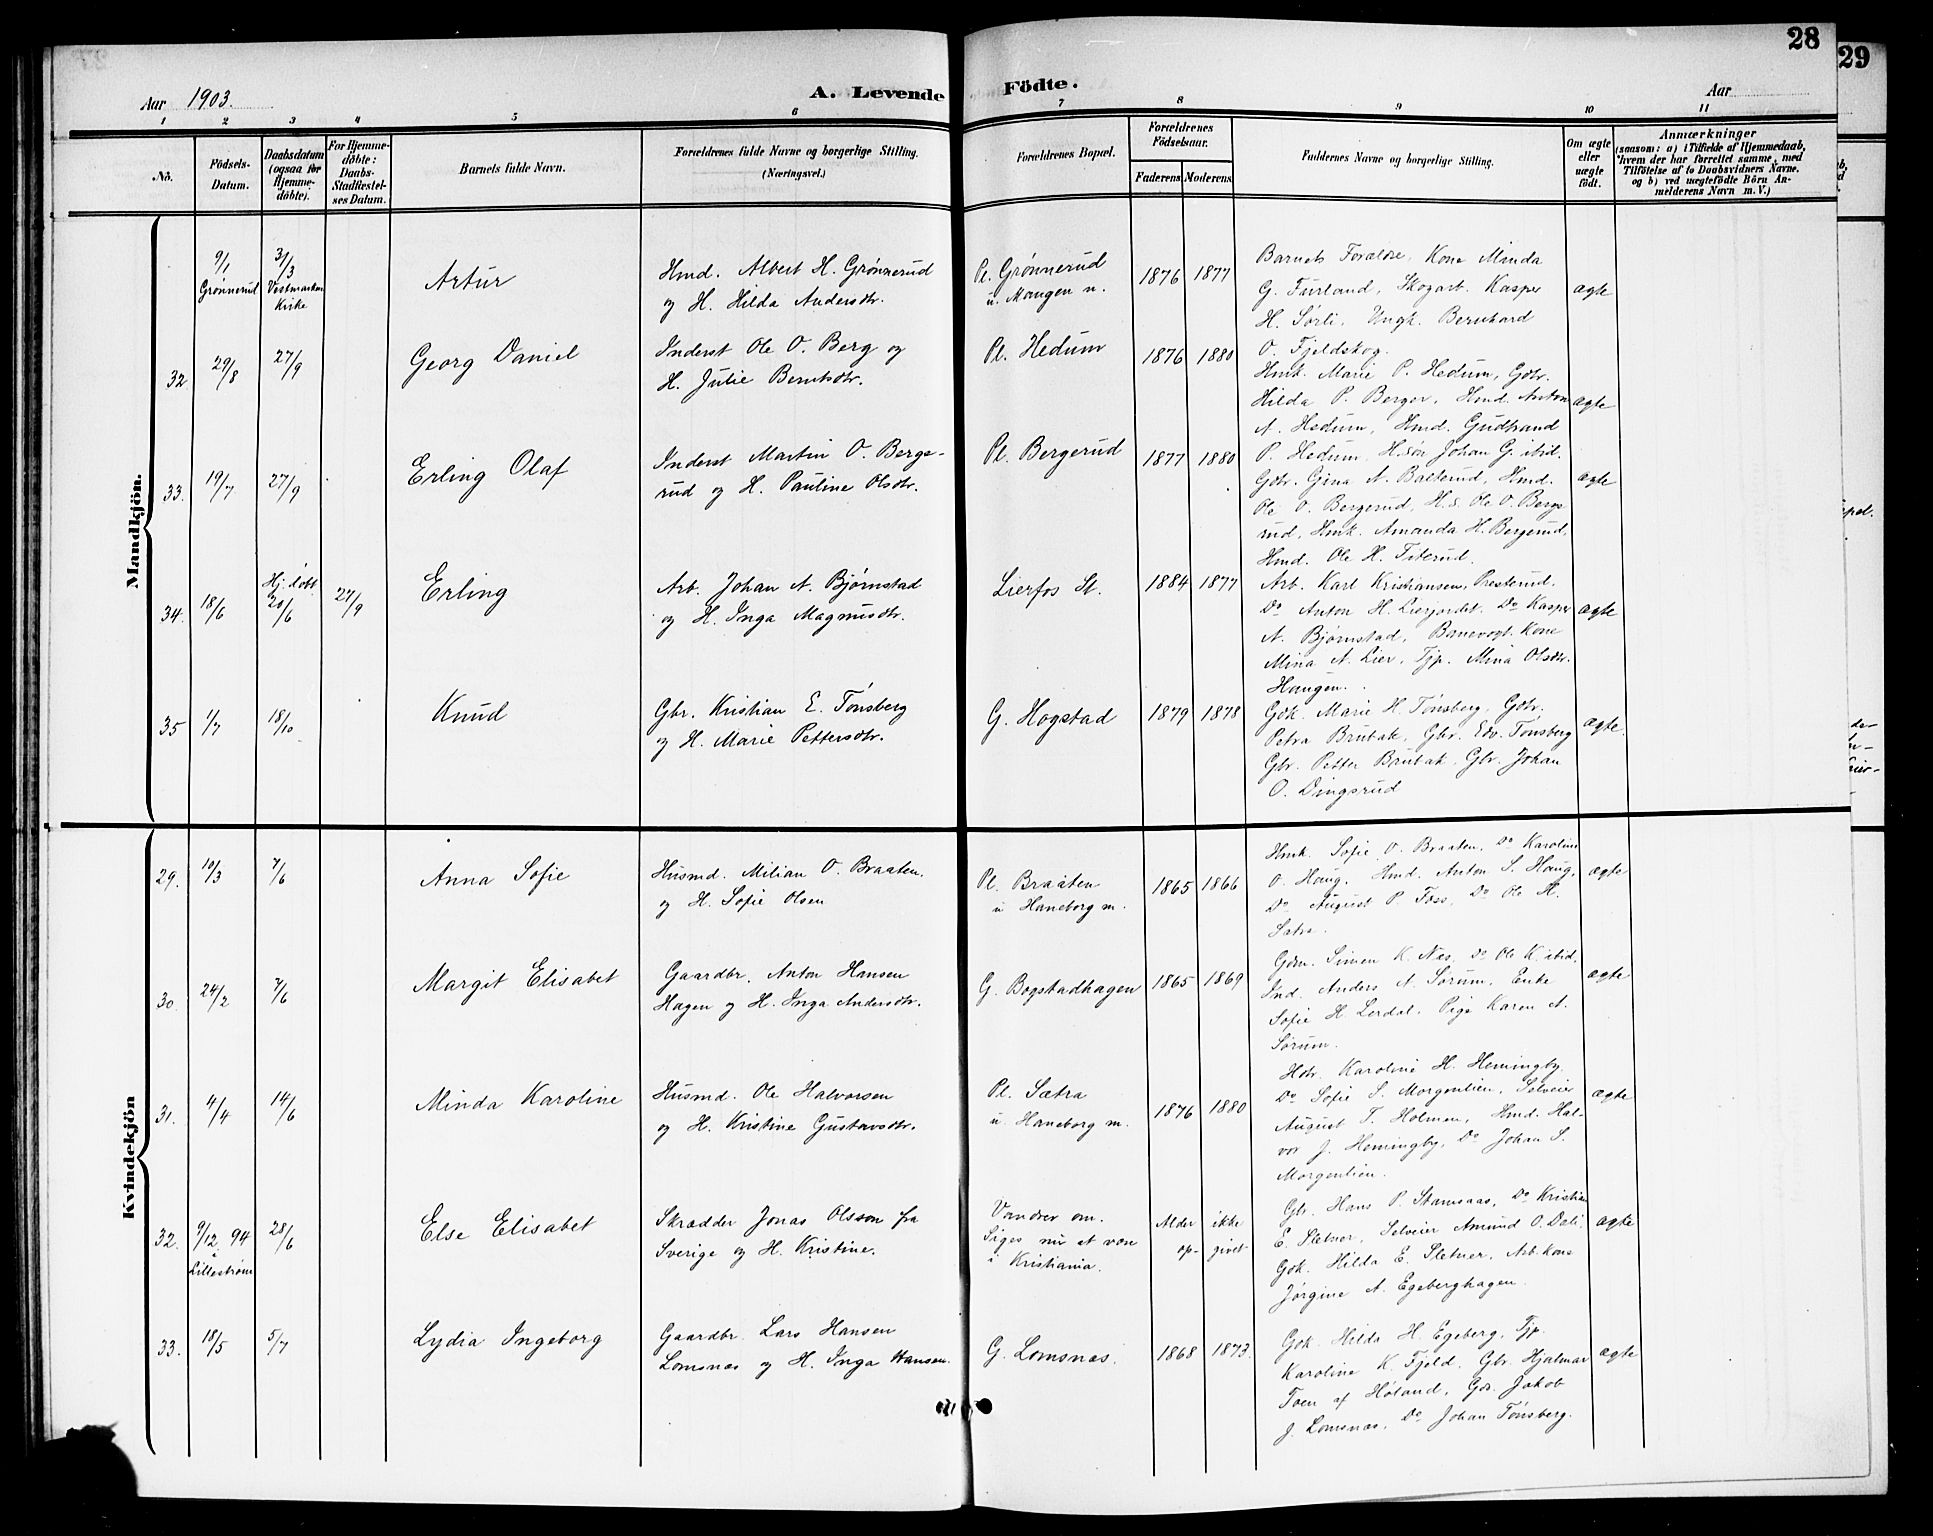 28
29
Aar 1903.
A. Levende Födte.
Aar
1 2 3 4 5 6 7 8 9 10 11
No.
Födsels-Datum.
Daabsdatum (ogsaa for Hjemme-döbte).
For Hjemme-döbte: Daabs-Stadfæstel-ses Datum.
Barnets fulde Navn.
Forældrenes fulde Navne og borgerlige Stilling.
(Næringsvei.)
Forældrenes Bopæl.
Forældrenes Födselsaar.
Faderens Moderens
Faddernes Navne og borgerlige Stilling.
Om ægte eller uægte födt.
Anmærkninger
(saasom: a) i Tilfælde af Hjemmedaab,
hvem der har forrettet samme, med
Tilföielse af to Daabsvidners Navne.
og b) ved uægtefödte Börn An-
melderens Navn m. V.)
Mandkjön.
9/1 Grønnerud
3/3 Vestmarken Kirke
Artur
Hmd. Albert H. Grønnerud
og H. Hilda Andersdtr.
Pl. Grønnerud
u. Mangen n.
1876 1877
Barnets Forældre, Kone Minda
G. Furland, Skogarb. Kasper
H. Sørli, Ungk. Bernhard
O. Fjeldskog.
ægte
32 29/8 27/9
Georg Daniel
Inderst Ole O. Berg og
H. Julie Berntsdtr.
Pl. Hedum
1876 1880
Hmk. Marie P. Hedum, Gdtr.
Hilda P. Berger, Hmd. Anton
A. Hedum, Hmd. Gudbrand
P. Hedum, H.søn Johan G. ibid.
ægte
33. 19/7 27/9
Erling Olaf
Inderst Martin O. Berge-
rud og H. Pauline Olsdtr.
Pl. Bergerud
1877 1880
Gdtr. Gina A. Balterud, Hmd.
Ole O. Bergerud, H.s. Ole O. Berge
rud, Hmk. Amanda H. Bergerud,
Hmd. Ole H. Titerud.
ægte
34. 18/6 Hj. døbt 20/6 27/9
Erling
Arb. Johan A. Bjørnstad
og H. Inga Magnusdtr.
Lierfos St.
1884 1877
Arb. Karl Kristiansen, Presterud.
Do Anton H. Lierjordet. Do Kasper
A. Bjørnstad, Banevogt. Kone
Mina A. Lier, Tjp. Mina Olsdtr.
Haugen.
ægte
35 1/7 18/10
Knud
Gbr. Kristian E. Tønsberg
og H. Marie Pettersdtr.
G. Hogstad
1879 1878
Gdk. Marie H. Tønsberg, Gdtr.
Petra Brubak, Gbr. Edv. Tønsberg
Gbr. Petter Brubak, Gbr. Johan
O. Dingsrud
ægte.
Kvindekjön
29. 10/3 7/6
Anna Sofie
Husmd. Milian O. Braaten.
og H. Sofie Olsen
Pl. Braaten
u Haneborg m.
1865 1866
Hmk. Sofie O. Braaten, Do Karoline
O. Haug, Hmd. Anton S. Haug,
Do August P. Foss, Do Ole H.
Sætra.
ægte
30. 24/2 7/6
Margit Elisabet
Gaardbr. Anton Hansen
Hagen og H. Inga Andersdtr.
G. Bogstadhagen
1865 1869
Gdm. Simen K. Næs, Do Ole K. ibid.
Ind. Anders A. Sørum, Enke
Sofie H. Lerdal, Pige Karen A.
Sørum.
ægte
31. 4/4 14/6
Minda Karoline
Husmd. Ole Halvorsen
og H. Kristine Gustavsdtr.
Pl. Sætra
u. Haneborg m.
1876 1880
Hdtr. Karoline H. Hemingby.
Do Sofie S. Morgenlien, Selveier
August T. Holmen, Hmd. Hal-
vor J. Hemingby, Do Johan S.
Morgenlien.
ægte
32. 9/12 94 i Lillestrøm 28/6
Else Elisabet
Skrædder Jonas Olsson fra
Sverige og H. Kristine.
Vandrer om.
Siges nu at være
i Kristiania.
Alder ikke
op- givet
Gbr. Hans P. Stamsaas, Do Kristian
E. Sletner, Selveier Amund O. Dali,
Gdk. Hilda E. Sletner, Arb. kone
Jørgine A. Egeberghagen.
ægte
33. 18/5 5/7
Lydia Ingeborg
Gaardbr. Lars Hansen
Lomsnæs og H. Inga Hansen.
G. Lomsnæs.
1868 1873.
Gdk. Hilda H. Egeberg, Tjp.
Karoline K. Fjeld, Gbr. Hjalmar
Toen af Høland, Gds. Jakob
J. Lomsnæs, Do Johan Tønsberg.
ægte